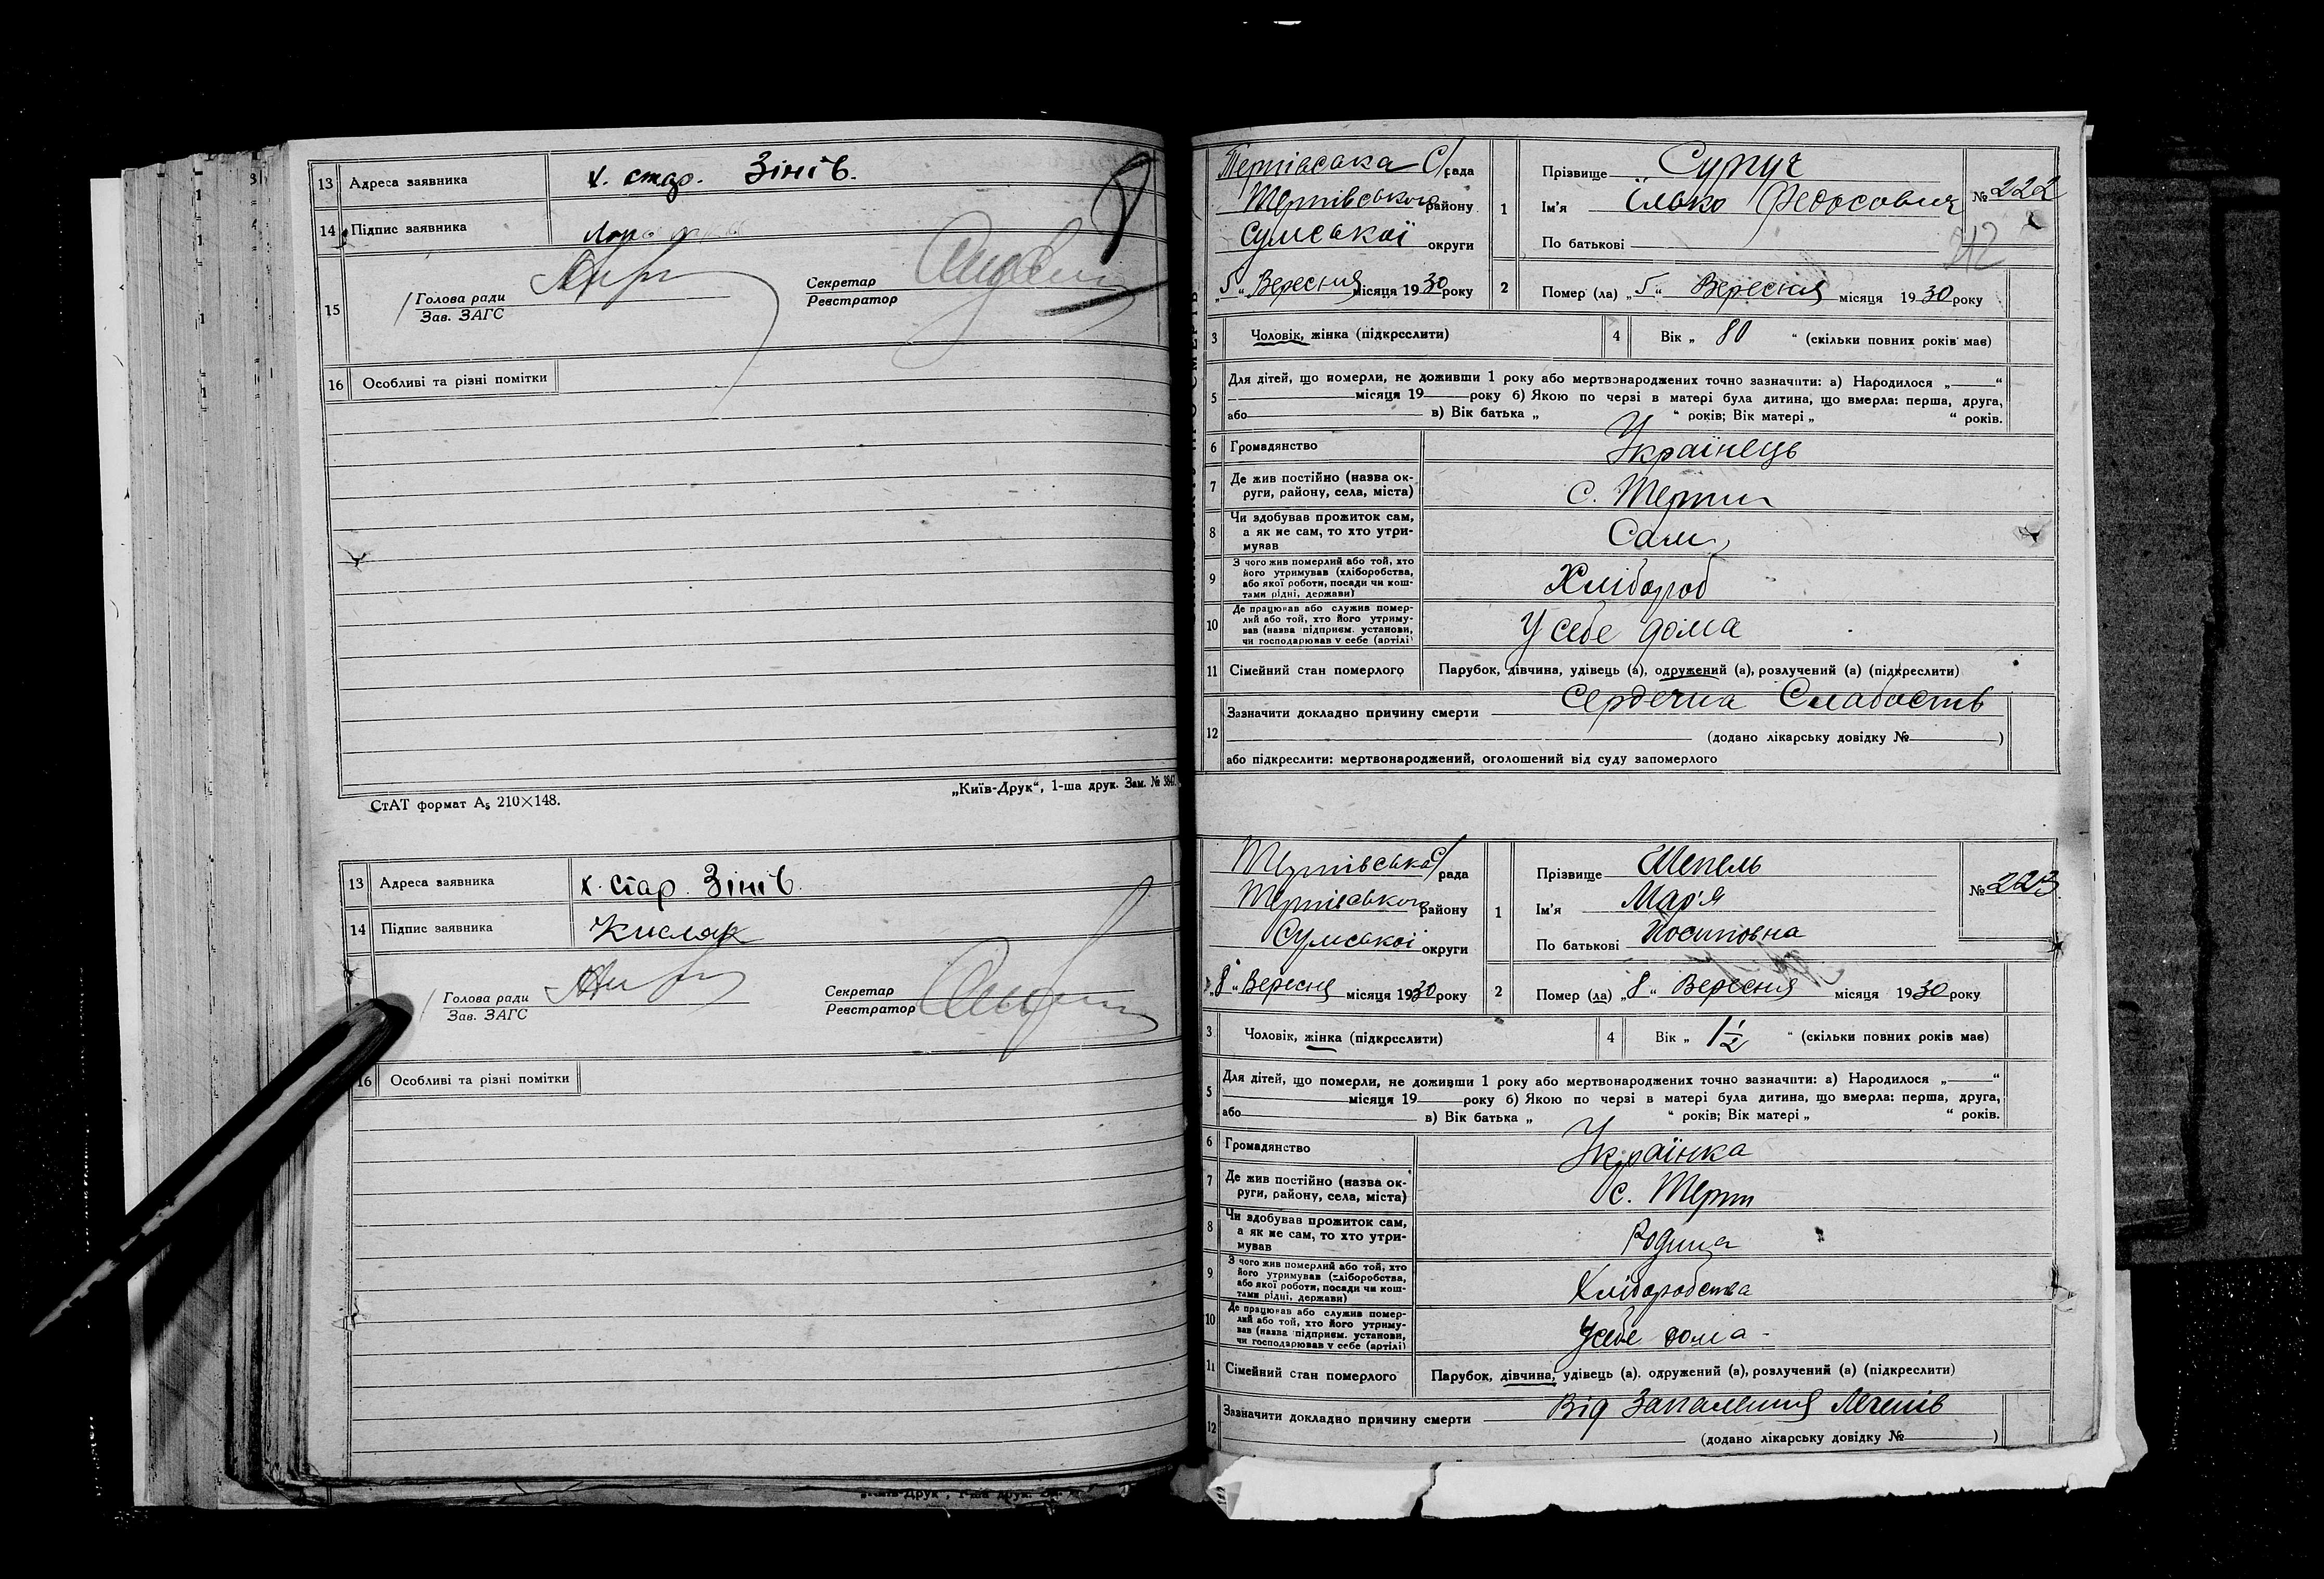 13 Адреса заявника х. стар. Зінів.
14 Підпис заявника
15 Голова ради
Зав. ЗАГС
Секретар
Реєстратор
16 Особливі та різні помітки
СтАТ формат А₅ 210×148.
„Київ-Друк“, 1-ша друк. Зам. № 3847.
13 Адреса заявника х. Стар. Зінів.
14 Підпис заявника Кисляк
Голова ради
Зав. ЗАГС
Секретар
Реєстратор
16 Особливі та різні помітки
Тернівська С/рада
Тернівського району
Сумської округи
„5“ Вересня місяця 1930 року
1 Прізвище Сургуч
Ім'я Ілько Федосович
По батькові
№ 222
212
2 Помер (ла) „5“ Вересня місяця 1930 року
3 Чоловік, жінка (підкреслити) 4 Вік „ 80 “ (скільки повних років має)
5 Для дітей, що померли, не доживши 1 року або мертвонароджених точно зазначити: а) Народилося „ “
місяця 19 року б) Якою по черзі в матері була дитина, що вмерла: перша, друга,
або в) Вік батька „ “ років; Вік матері „ “ років.
6 Громадянство Українець
7 Де жив постійно (назва ок-
руги, району, села, міста) с. Терни
8 Чи здобував прожиток сам,
а як не сам, то хто утри-
мував Сам
9 З чого жив померлий або той, хто
його утримував (хліборобства,
або якої роботи, посади чи кош-
тами рідні, держави) Хлібороб
10 Де працював або служив помер-
лий або той, хто його утриму-
вав (назва підприєм. установи,
чи господарював у себе (артілі) У себе дома
11 Сімейний стан померлого Парубок, дівчина, удівець (а), одружений (а), розлучений (а) (підкреслити)
12 Зазначити докладно причину смерти Сердечна Слабость
(додано лікарську довідку № )
або підкреслити: мертвонароджений, оголошений від суду запомерлого
Тернівська С/рада
Тернівського району
Сумської округи
„8“ Вересня місяця 1930 року
1 Прізвище Шепель
Ім'я Мар'я
По батькові Йосиповна
№ 223
2 Помер (ла) „8“ Вересня місяця 1930 року
3 Чоловік, жінка (підкреслити) 4 Вік „ 1½ “ (скільки повних років має)
5 Для дітей, що померли, не доживши 1 року або мертвонароджених точно зазначити: а) Народилося „ “
місяця 19 року б) Якою по черзі в матері була дитина, що вмерла: перша, друга,
або в) Вік батька „ “ років; Вік матері „ “ років.
6 Громадянство Українка
7 Де жив постійно (назва ок-
руги, району, села, міста) с. Терни
8 Чи здобував прожиток сам,
а як не сам, то хто утри-
мував Родина
9 З чого жив померлий або той, хто
його утримував (хліборобства,
або якої роботи, посади чи кош-
тами рідні, держави) Хліборобства
10 Де працював або служив помер-
лий або той, хто його утриму-
вав (назва підприєм. установи,
чи господарював у себе (артілі) У себе дома
11 Сімейний стан померлого Парубок, дівчина, удівець (а), одружений (а), розлучений (а) (підкреслити)
12 Зазначити докладно причину смерти Від Запалення Легенів
(додано лікарську довідку № )